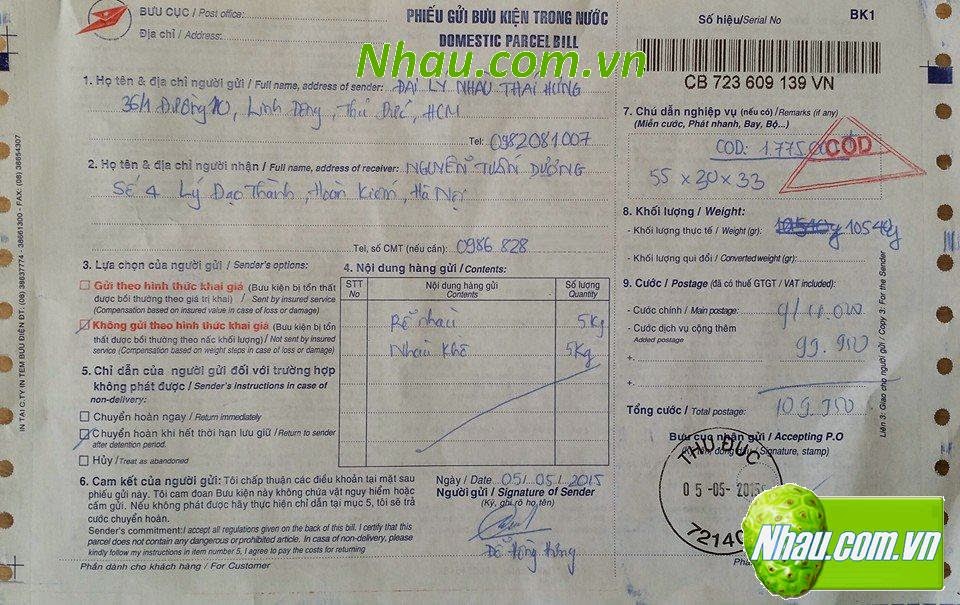 BƯU CỤC / Post office:
Địa chỉ / Address:
PHIẾU GỬI BƯU KIỆN TRONG NƯỚC
DOMESTIC PARCEL BILL
Nhau.com.vn
Số hiệu/Serial No
BK1
CB 723 609 139 VN
1. Họ tên & địa chỉ người gửi / Full name, address of sender: ĐẠI LÝ NHÀU THÁI HƯNG
36/1 Đường 10, Linh Đông, Thủ Đức, HCM
Tel: 0982081007
2. Họ tên & địa chỉ người nhận / Full name, address of receiver: NGUYỄN TUẤN DƯƠNG
Số 4 Lý Đạo Thành, Hoàn Kiếm, Hà Nội
Tel, số CMT (nếu cần): 0986 828
3. Lựa chọn của người gửi / Sender's options:
Gửi theo hình thức khai giá (Bưu kiện bị tổn
thất được bồi thường theo giá trị khai) / Sent by insured service
(Compensation based on insured value in case of loss or damage)
Không gửi theo hình thức khai giá (Bưu kiện bị tổn
thất được bồi thường theo nấc khối lượng) / Not sent by insured
service (Compensation based on weight steps in case of loss or damage)
4. Nội dung hàng gửi / Contents:
STT
No
Nội dung hàng gửi
Contents
Số lượng
Quantity
Rễ nhàu 5kg
Nhàu khô 5kg
5. Chỉ dẫn của người gửi đối với trường hợp
không phát được / Sender's instructions in case of
non-delivery:
Chuyển hoàn ngay / Return immediately
Chuyển hoàn khi hết thời hạn lưu giữ / Return to sender
after detention period.
Hủy / Treat as abandoned
6. Cam kết của người gửi: Tôi chấp thuận các điều khoản tại mặt sau
phiếu gửi này. Tôi cam đoan Bưu kiện này không chứa vật nguy hiểm hoặc
cấm gửi. Nếu không phát được hãy thực hiện chỉ dẫn tại mục 5, tôi sẽ trả
cước chuyển hoàn.
Sender's commitment: I accept all regulations given on the back of this bill. I certify that this
parcel does not contain any dangerous or prohibited article. In case of non-delivery, please
kindly follow my instructions in item number 5, I agree to pay the costs for returning
Phần dành cho khách hàng / For Customer
Ngày / Date: 05/05/2015
Người gửi / Signature of Sender
(Ký, ghi rõ họ tên)
7. Chú dẫn nghiệp vụ (nếu có) / Remarks (if any)
(Miễn cước, Phát nhanh, Bay, Bộ...)
COD: 1.775
COD
55 x 30 x 33
8. Khối lượng / Weight:
- Khối lượng thực tế / Weight (gr): 10540g
- Khối lượng qui đổi / Converted weight (gr):
9. Cước / Postage (đã có thuế GTGT / VAT included):
- Cước chính / Main postage:
- Cước dịch vụ cộng thêm 99.900
Added postage
+.
+.
Tổng cước / Total postage: 109.900
Bưu cục nhận gửi / Accepting P.O
Signature, stamp)
THU ĐUC
05-05-2015
7214
Nhau.com.vn
Liên 3: Giao cho người gửi / Copy 3: For the Sender
IN TẠI C.TY IN TEM BƯU ĐIỆN ĐT: (08) 38637774 - 38661300 - FAX: (08) 38654307